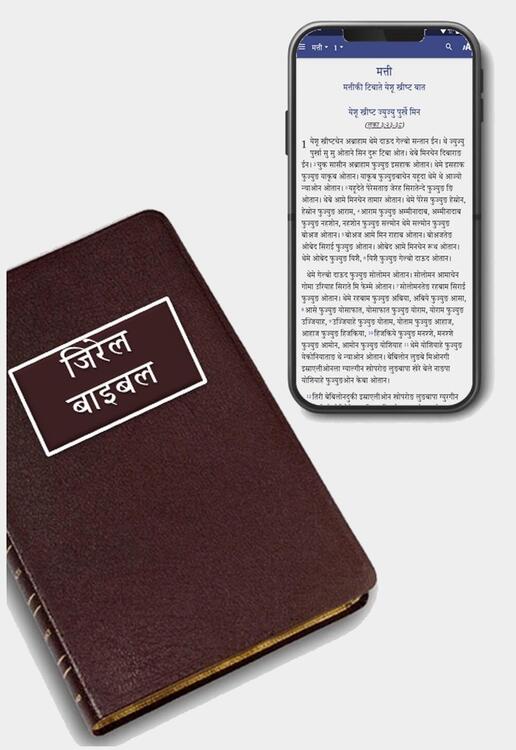 जिरेल
बाइबल
मत्ती
1
मत्ती
मत्तीकी टिबाते येशू ख्रीष्ट बात
येशू ख्रीष्ट ज्युज्यु पुर्खे मिन
1 येशू ख्रीष्टचेन अब्राहाम थेमे दाऊद गेल्बो सन्तान ईन। थे ज्युज्यु
पुर्खा सु सु ओताने सिन दुरू टिबा ओत। थेबे मिनचेन दिबाराङ
ईन। २ चुक सासीन अब्राहाम फुज्युङ इसहाक ओतान। थेमे इसहाक
फुज्युङ याकूब ओतान। याकूब फुज्युङबाचेन यहूदा थेमे थे आज्यो
न्याओन ओतान। ३ यहूदेते पेरेसताङ जेरह सिरातेन्दे फुज्युङ ङि
ओतान। थेबे आमे मिनचेन तामार ओतान। थेमे पेरेस फुज्युङ हेस्रोन,
हेस्रोन फुज्युङ आराम, ४ आराम फुज्युङ अम्मीनादाब, अम्मीनादाब
फुज्युङ नहशोन, नहशोन फुज्युङ सल्मोन थेमे सल्मोन फुज्युङ
बोअज ओतान। ५ बोअज आमे मिन राहाब ओतान। बोअजतेङ
ओबेद सिराई फुज्युङ ओतान। ओबेद आमे मिनचेन रूथ ओतान।
थेमे ओबेद फुज्युङ यिशै, ६ यिशै फुज्युङ गेल्बो दाऊद ओतान।
थेमे गेल्बो दाऊद फुज्युङ सोलोमन ओतान। सोलोमन आमाचेन
गोमा उरियाह सिराते मि फेम्मे ओतान। ७ सोलोमनतेङ रहबाम सिराई
फुज्युङ ओतान। थेमे रहबाम फुज्युङ अबिया, अबिये फुज्युङ आसा,
८ आसे फुज्युङ योसाफात, योसाफात फुज्युङ योराम, योराम फुज्युङ
उज्जियाह, ९ उज्जियाहे फुज्युङ योताम, योताम फुज्युङ आहाज,
आहाज फुज्युङ हिजकिया, १० हिजकिये फुज्युङ मनश्शे, मनश्शे
फुज्युङ आमोन, आमोन फुज्युङ योशियाह ११ थेमे योशियाहे फुज्युङ
येकोनियाताङ थे न्याओन ओतान। बेबिलोन लुङबे मिओनगी
इस्राएलीओनला ग्याल्गीन खोपराेङ लुङबापा खेरे बेले नाङपा
योशियाहे फुज्युङओन केबा ओतान।
१२ तिरी बेबिलोनदुकी इस्राएलीओन खोपरोङ लुङबापा ग्युरगीन